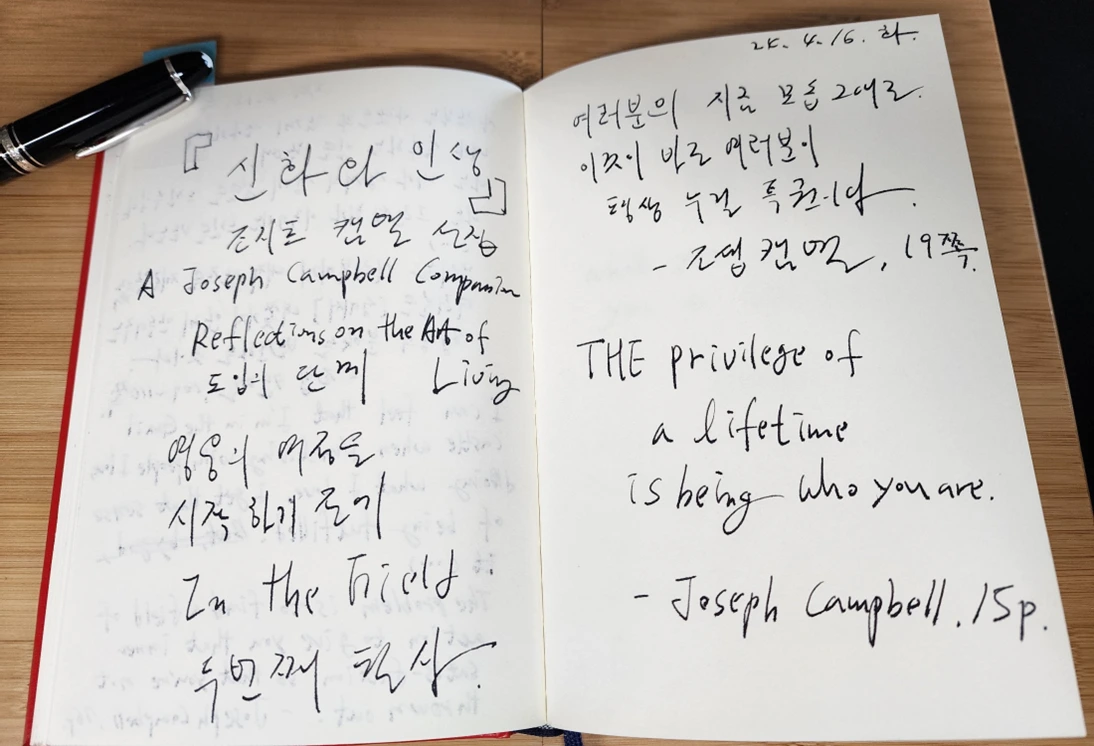 『신화와 인생』
조지프 캠벨 선집
A Joseph Campbell Companion
Reflections on the Art of
Living
도입의 단계
영웅의 여정을
시작하기
In the Field
두번째 필사.
24. 4. 16. 화.
여러분의 지금 모습 그대로.
이것이 바로 여러분이
평생 누릴 특권이다.
- 조셉 캠벨, 19쪽.
THE privilege of
a lifetime
is being who you are.
- Joseph Campbell, 15p.